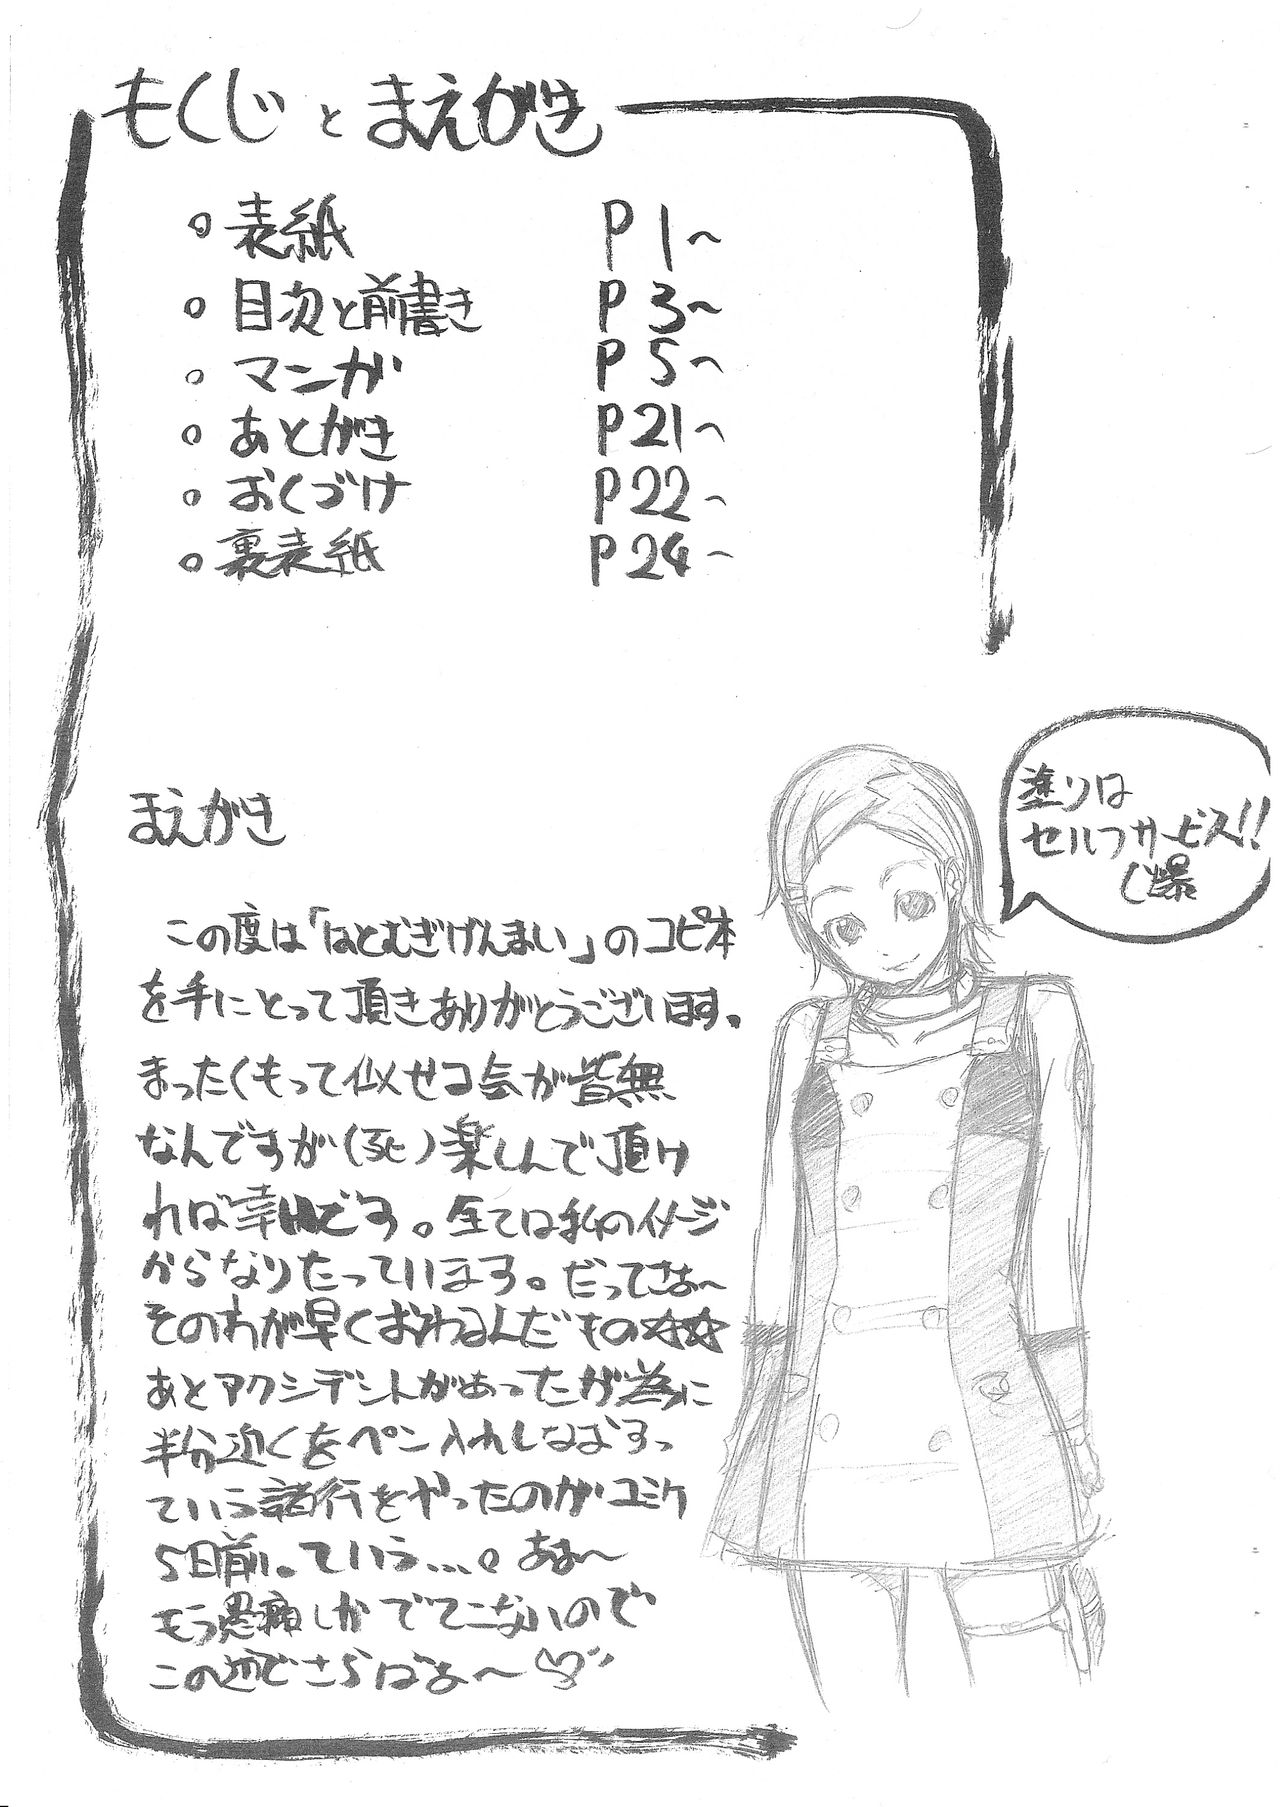 もくじ と まえがき
○ 表紙 P1～
○ 目次と前書き P3～
○ マンガ P5～
○ あとがき P21～
○ おくづけ P22～
○ 裏表紙 P24～
塗りは
セルフサービス!!
(爆
まえがき
この度は「はとむぎげんまい」のコピ本
を手にとって頂きありがとうございます。
まったくもって似せる気が皆無
なんですが(死)楽しんで頂け
れば幸いです。全ては私のイメージ
からなりたっています。だってさぁ～
そのわが早くおわるんだもの☆☆
あとアクシデントがあったが為に
半分近くをペン入れしなおすっ
ていう諸行をやったのがコミケ
5日前。ていう…。ああ～
もう愚痴しかでてこないので
この辺でさらばぁ～♡